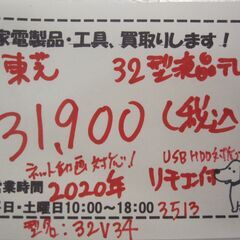 家電製品・工具、買取りします！
東芝 32型液晶テレ
31,900（税込
ネット動画対応！ USB HDD対応
営業時間 2020年 リモコン付
日・土曜日10:00～18:00 3513
型名：32V34